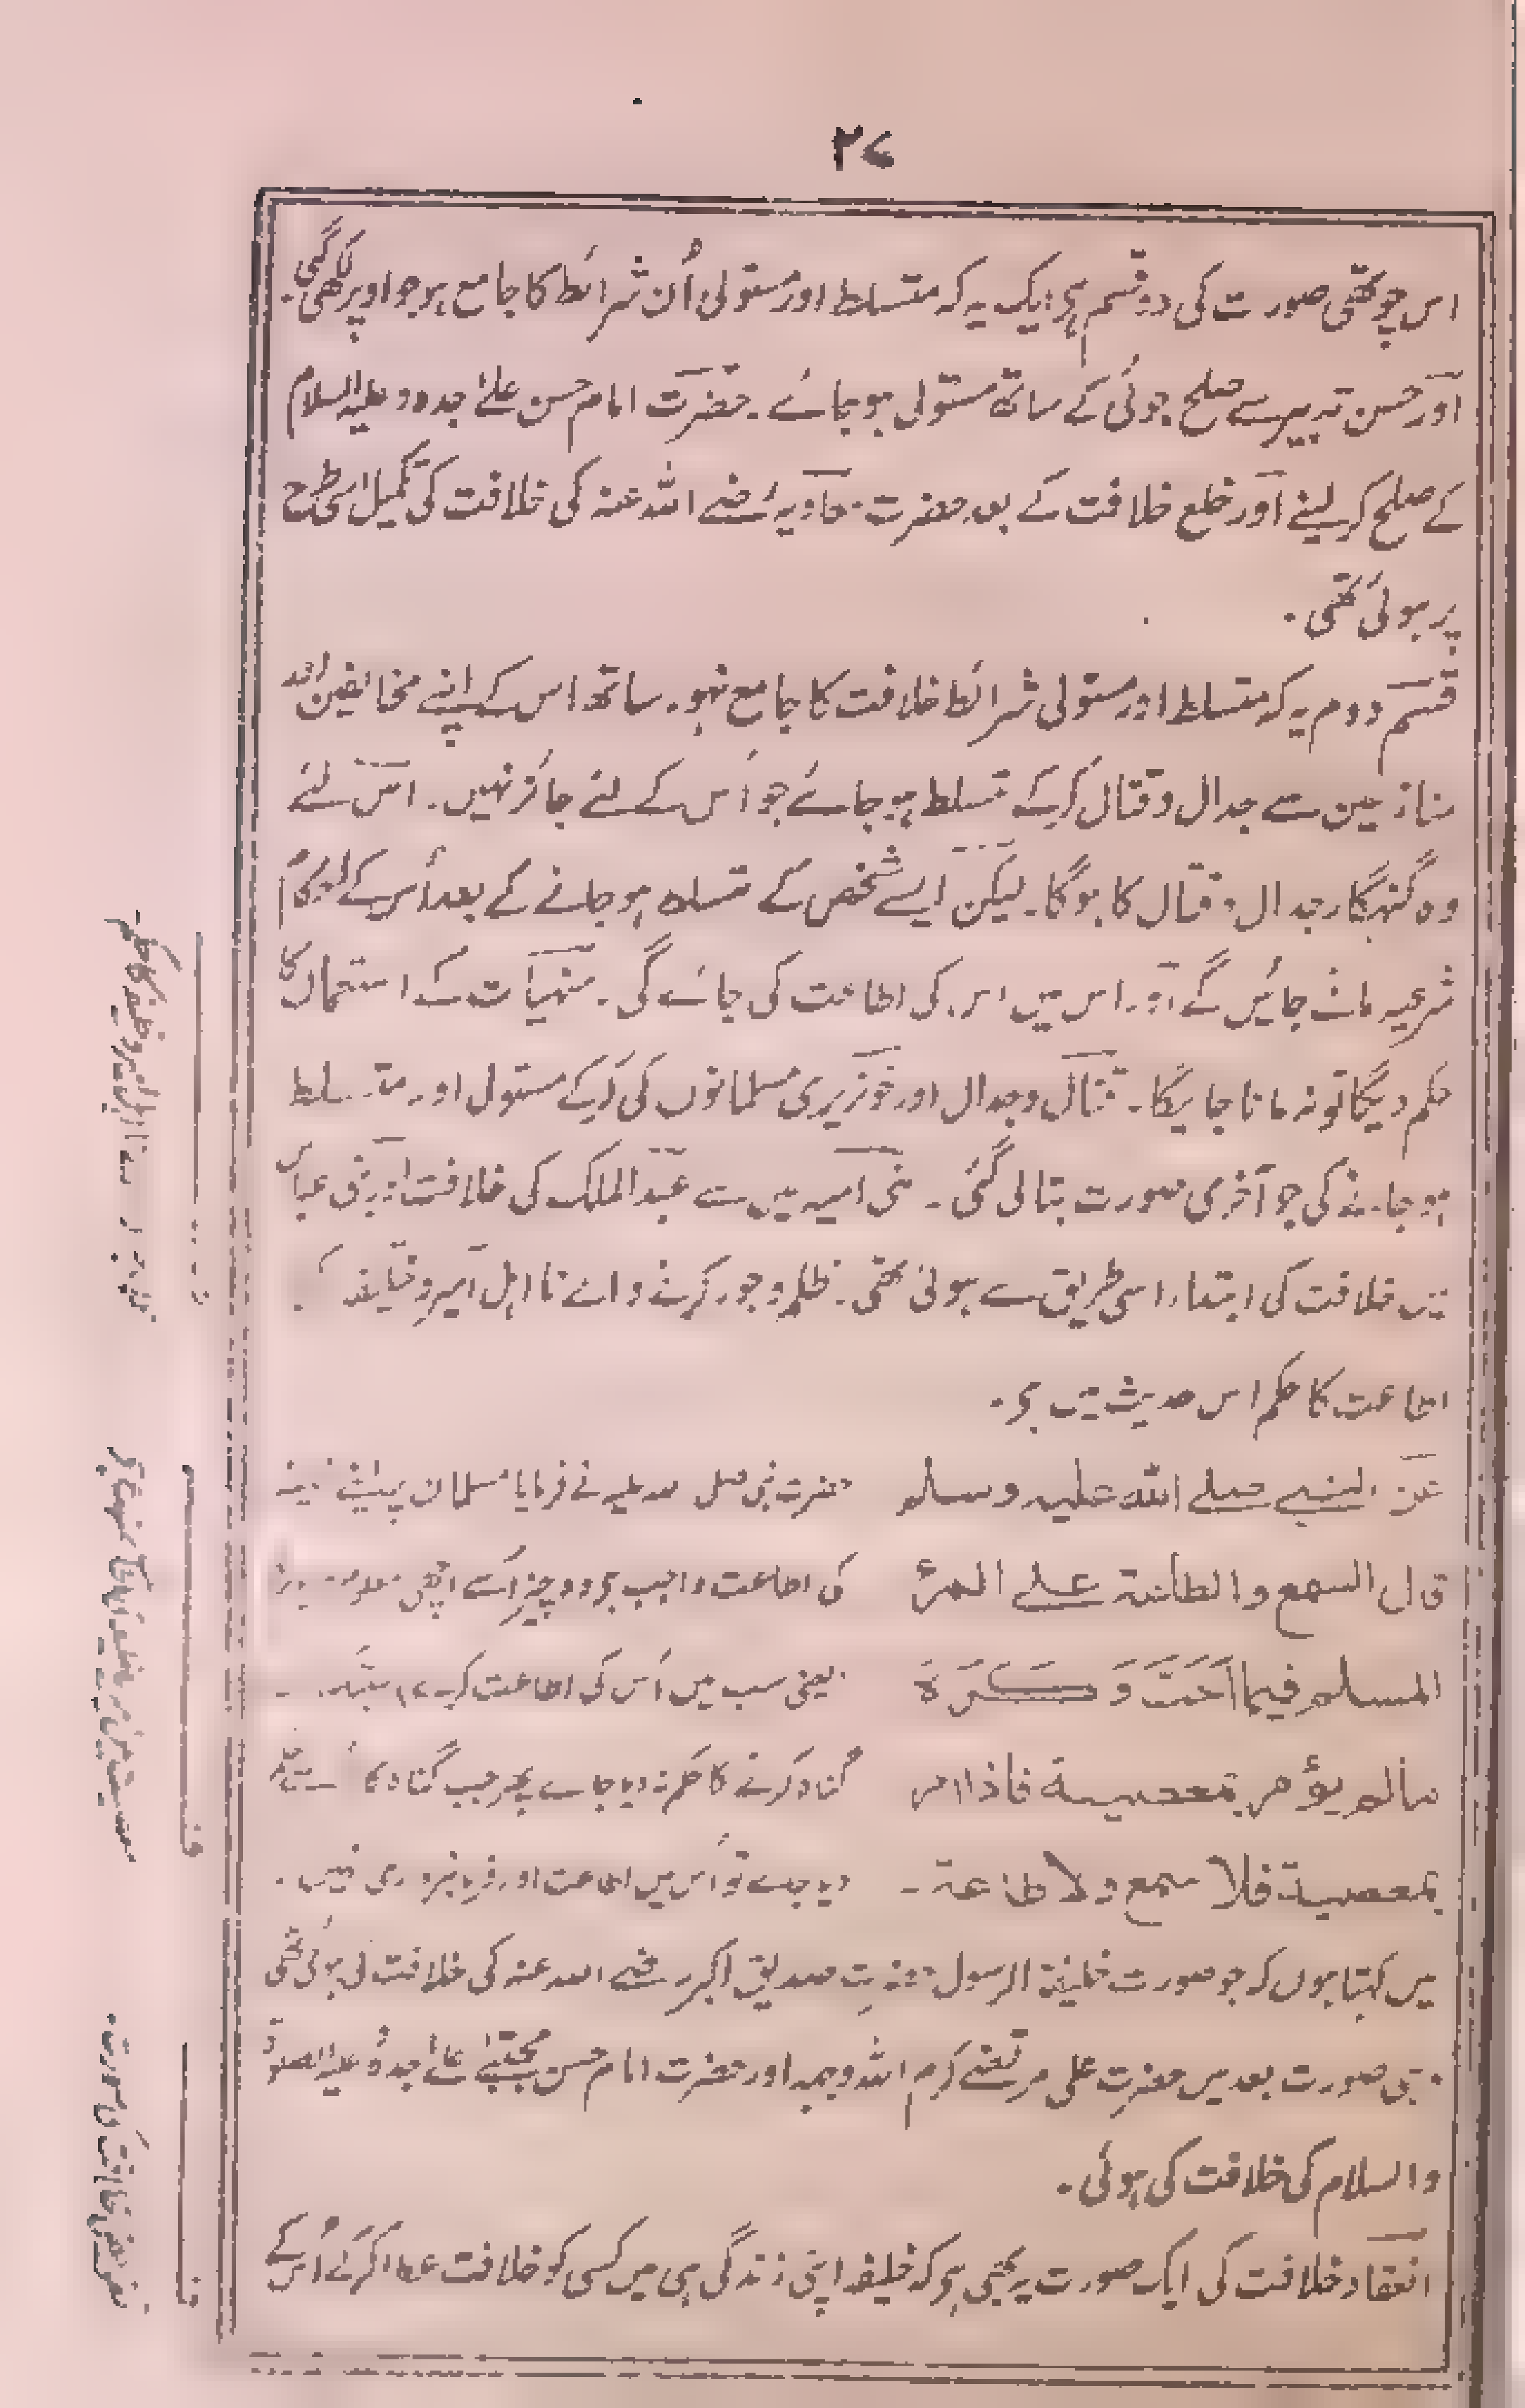 ۲۷
اس چوتھی صورت کی دو قسم ہی ایک یہ کہ متسلط اور مستولی اُن شرائط کا جامع ہو جو اوپر لکھی گئی۔
اور حسن تدبیر سے صلح جوئی کے ساتھ مستولی ہو جائے۔ حضرت امام حسن علیٰ جدہ و علیہ السلام
کے صلح کر لینے اور خلع خلافت کے بعد حضرت معاویہ رضے اللہ عنہ کی خلافت کی تکمیل اسی طرح
پر ہوئی تھی۔
قسم دوم یہ کہ متسلط اور مستولی شرائط خلافت کا جامع نہو۔ ساتھ اس کے اپنے مخالفین اور
منازعین سے جدال و قتال کرکے متسلط ہو جائے جو اُس کے لئے جائز نہیں۔ اس لئے
وہ گنہگار جدال و قتال کا ہوگا۔ لیکن ایسے شخص کے متسلط ہو جانے کے بعد اُس کے احکام
شرعیہ مانے جائیں گے اور اس میں اس کی اطاعت کی جائے گی۔ منہیات کے استعمال کا
حکم دیگا تو نہ مانا جائیگا۔ قتال و جدال اور خونریزی مسلمانوں کی کرکے مستولی اور متسلط
ہو جانے کی جو آخری صورت بتائی گئی۔ بنی امیہ میں سے عبد الملک کی خلافت اور بنی عباس
میں خلافت کی ابتداء اسی طریق سے ہوئی تھی۔ ظلم و جور کرنے والے نا اہل امیر و خلیفہ
اطاعت کا حکم اس حدیث میں ہی۔
عن النبی صلے اللہ علیہ وسلم حضرت نبی صلی اللہ علیہ نے فرمایا مسلمان پر
قال السمع والطاعۃ علے المرءِ کی اطاعت واجب ہی وہ چیز اُسے اچھی معلوم
المسلم فیما اَحَبَّ وَ کَرِہَ یعنی سب میں اُس کی اطاعت کرے
مالم یؤمر بمعصیۃ فاذا امر گناہ کرنے کا حکم نہ دیا جاے پھر جب گناہ کا
بمعصیۃ فلا سمع ولا طاعۃ۔ دیا جاے تو اُس میں اطاعت اور فرمانبرداری نہیں۔
میں کہتا ہوں کہ جو صورت خلیفۃ الرسول حضرت صدیق اکبر رضے اللہ عنہ کی خلافت کی ہوئی تھی
صورت بعد میں حضرت علی مرتضے کرم اللہ وجہہ اور حضرت امام حسن مجتبےٰ علےٰ جدہ و علیہ الصلوٰۃ
والسلام کی خلافت کی ہوئی۔
انعقاد خلافت کی ایک صورت یہ بھی ہی کہ خلیفہ اپنی زندگی ہی میں کسی کو خلافت عطا کرکے اُس کے